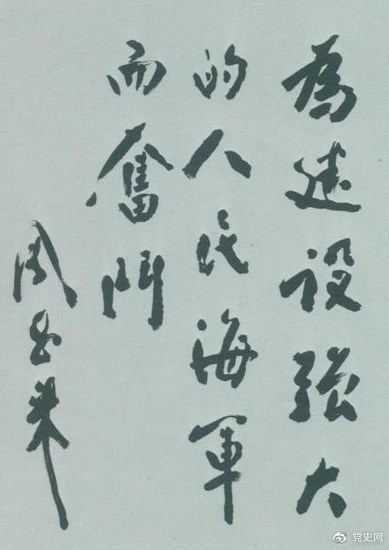 為建設強大
的人民海軍
而奮鬥
周恩来
党史网